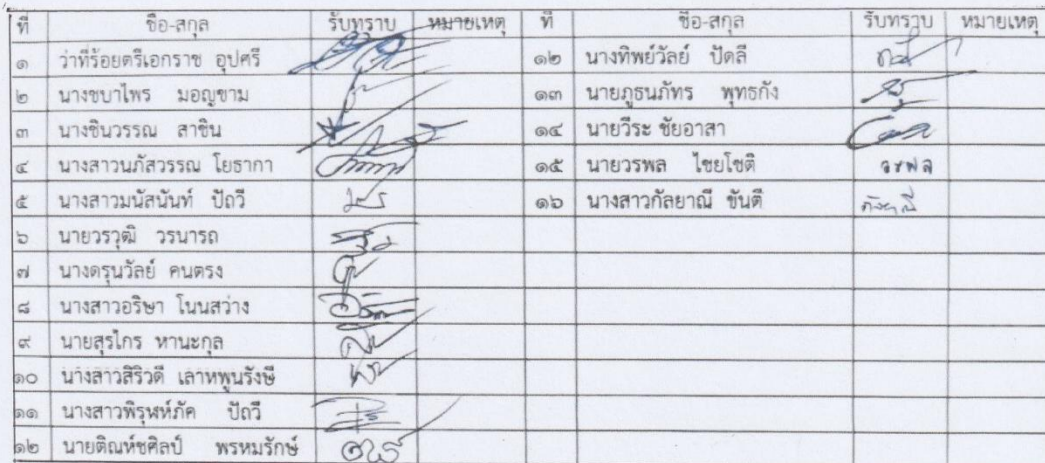 ที่ ชื่อ-สกุล รับทราบ หมายเหตุ ที่ ชื่อ-สกุล รับทราบ หมายเหตุ
๑ ว่าที่ร้อยตรีเอกราช อุปศรี ๑๒ นางทิพย์วัลย์ ปัดลี
๒ นางชบาไพร มอญขาม ๑๓ นายภูธนภัทร พุทธกัง
๓ นางชินวรรณ สาชิน ๑๔ นายวีระ ชัยอาสา
๔ นางสาวนภัสวรรณ โยธากา ๑๕ นายวรพล ไชยโชติ วรพล
๕ นางสาวมนัสนันท์ ปัถวี ๑๖ นางสาวกัลยาณี ขันตี กัลยาณี
๖ นายวรวุฒิ วรนารถ
๗ นางดรุนวัลย์ คนตรง
๘ นางสาวอริษา โนนสว่าง
๙ นายสุรไกร หานะกุล
๑๐ นางสาวสิริวดี เลาหพูนรังษี
๑๑ นางสาวพิรุฬห์ภัค ปัถวี
๑๒ นายติณห์ชศิลป์ พรหมรักษ์